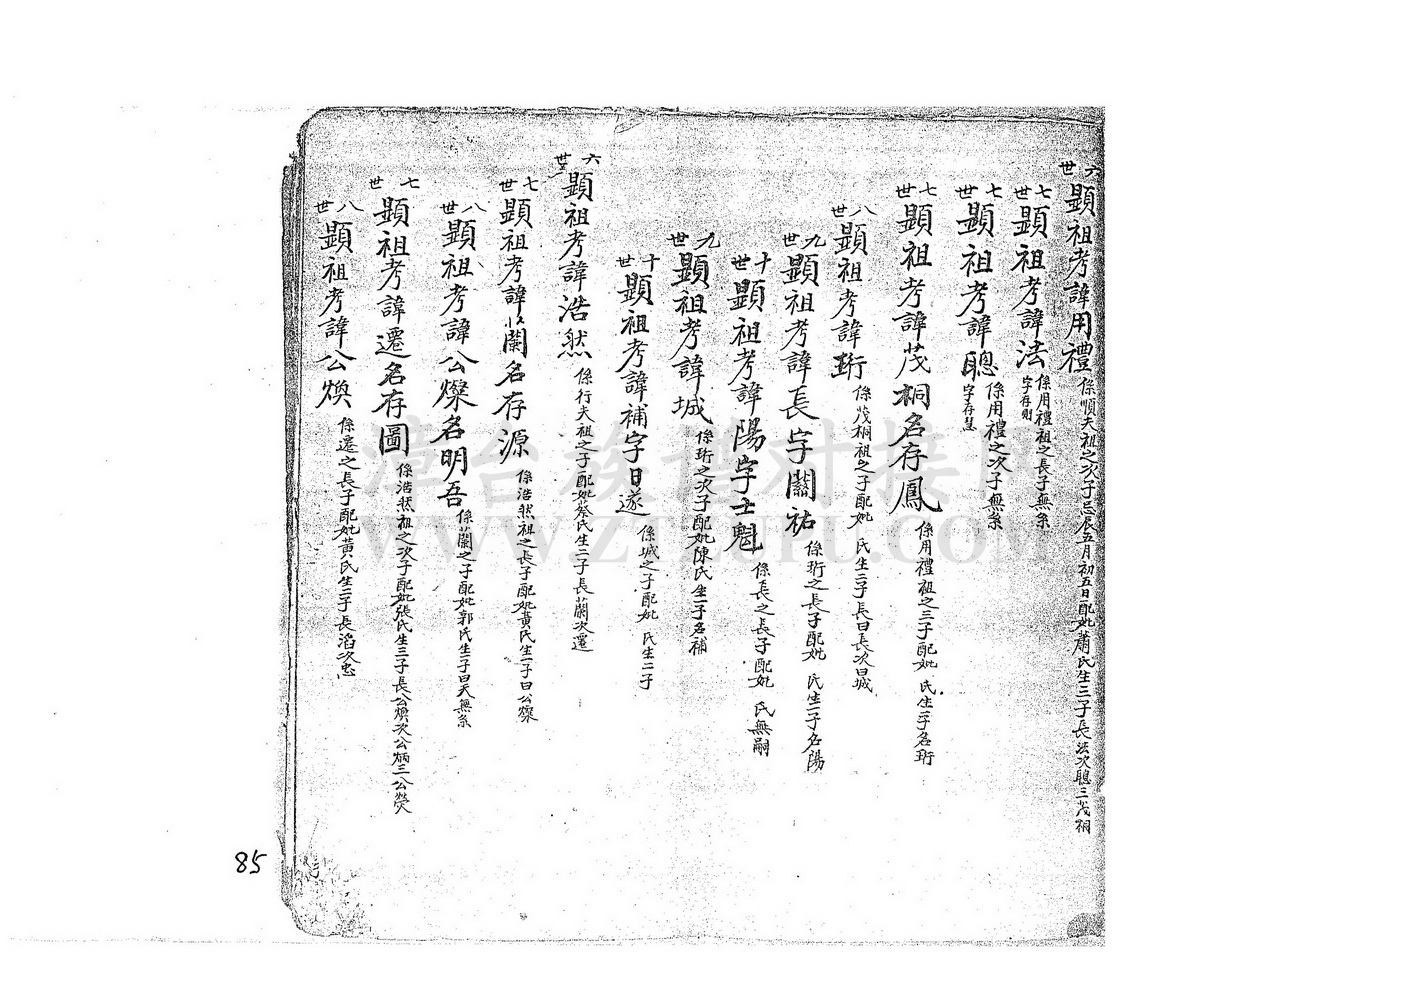 六世 顯祖考諱用禮 係順夫祖之次子忌辰五月初五日配妣蕭氏生三子長法次聰三茂桐
七世 顯祖考諱法 係用禮祖之長子無系 字存則
七世 顯祖考諱聰 係用禮之次子無系 字存慧
七世 顯祖考諱茂桐名存鳳 係用禮祖之三子配妣 氏生一子名珩
八世 顯祖考諱珩 係茂桐祖之子配妣 氏生二子長曰長次曰城
九世 顯祖考諱長字關祐 係珩之長子配妣 氏生一子名陽
十世 顯祖考諱陽字士魁 係長之長子配妣 氏無嗣
九世 顯祖考諱城 係珩之次子配妣陳氏生一子名補
十世 顯祖考諱補字日遂 係城之子配妣 氏生二子
六世 顯祖考諱浩然 係行夫祖之子配妣蔡氏生二子長蘭次遷
七世 顯祖考諱蘭名存源 係浩然祖之長子配妣黃氏生一子曰公燦
八世 顯祖考諱公燦名明吾 係蘭之子配妣郭氏生一子曰天無系
七世 顯祖考諱遷名存圖 係浩然祖之次子配妣張氏生三子長公煥次公炳三公熒
八世 顯祖考諱公煥 係遷之長子配妣黃氏生二子長滔次忠
85
漳台族譜对接网
WWW.ZTZUPU.COM